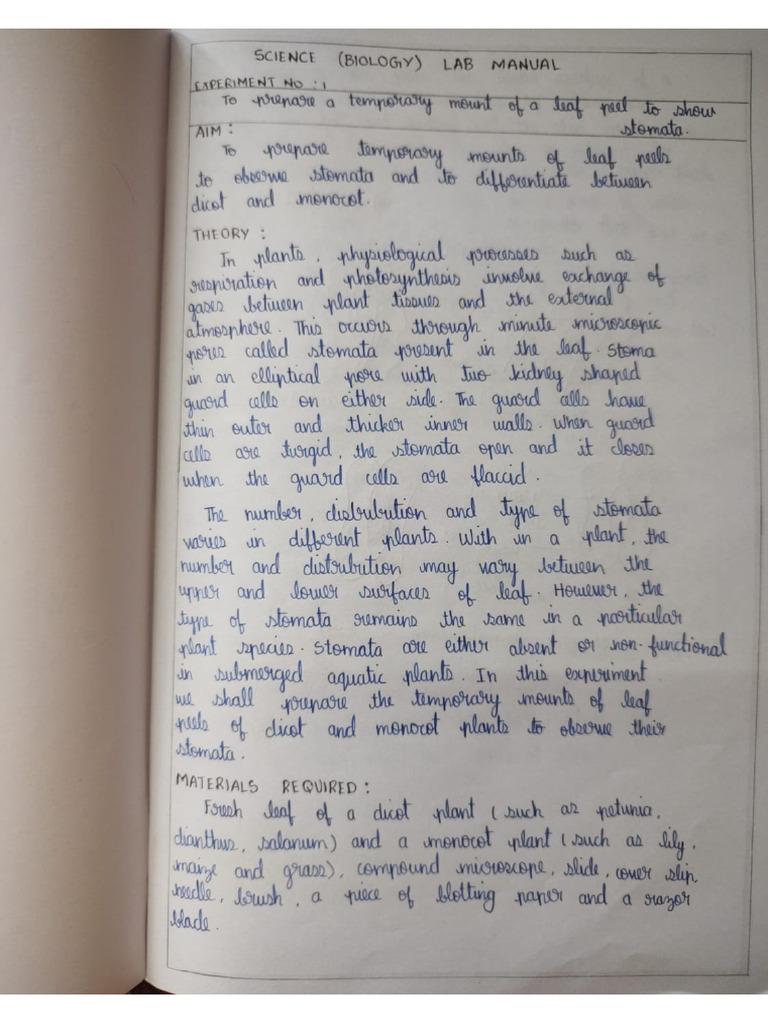 SCIENCE (BIOLOGY) LAB MANUAL
EXPERIMENT NO : 1
To prepare a temporary mount of a leaf peel to show
stomata.
AIM :
To prepare temporary mounts of leaf peels
to observe stomata and to differentiate between
dicot and monocot.
THEORY :
In plants, physiological processes such as
respiration and photosynthesis involve exchange of
gases between plant tissues and the external
atmosphere. This occurs through minute microscopic
pores called stomata present in the leaf. Stoma
in an elliptical pore with two kidney shaped
guard cells on either side. The guard cells have
thin outer and thicker inner walls. When guard
cells are turgid, the stomata open and it closes
when the guard cells are flaccid.
The number, disbrubution and type of stomata
varies in different plants. With in a plant, the
number and distribution may vary between the
upper and lower surfaces of leaf. However, the
type of stomata remains the same in a particular
plant species. Stomata are either absent or non-functional
in submerged aquatic plants. In this experiment
we shall prepare the temporary mounts of leaf
peels of dicot and monocot plants to observe their
stomata.
MATERIALS REQUIRED :
Fresh leaf of a dicot plant (such as petunia,
dianthus, salanum) and a monocot plant (such as lily,
maize and grass), compound microscope, slide, cover slip,
needle, brush, a piece of blotting paper and a razor
blade.